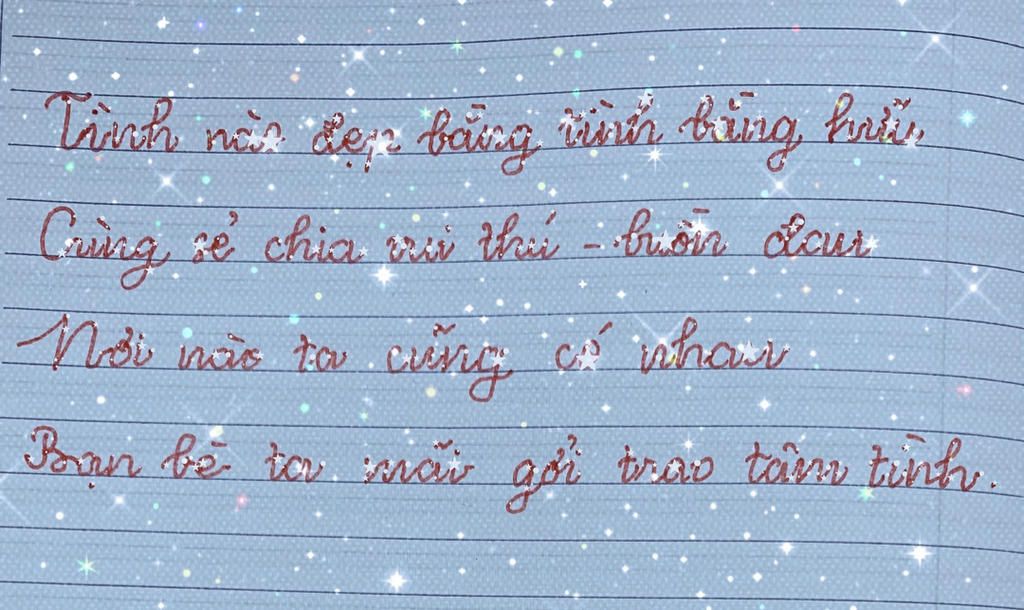 Tình nào đẹp bằng tình bằng hữu
Cùng sẻ chia vui thú - buồn đau
Nơi nào ta cũng có nhau
Bạn bè ta mãi gởi trao tâm tình.